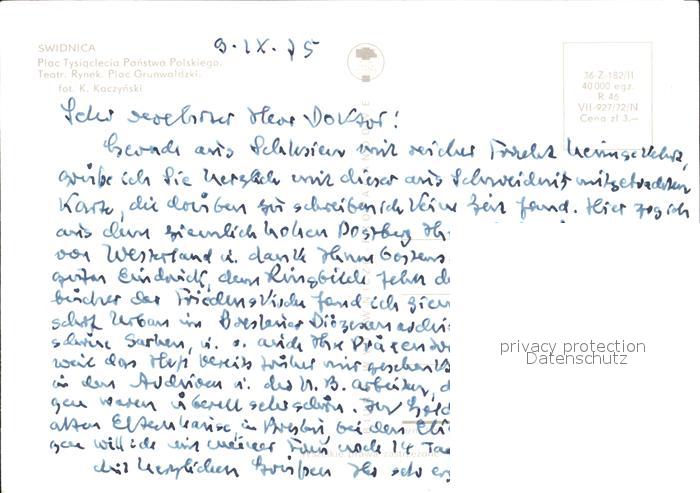 9.IX.75
SWIDNICA
Plac Tysiąclecia Państwa Polskiego.
Teatr. Rynek. Plac Grunwaldzki.
fot. K. Kaczyński
36-Z-182/II
40 000 egz.
R 46
VII-927/72/N
Cena zł 3.—
Sehr verehrter Herr Doktor!
Gerade aus Schlesien mit reicher Fracht heimgekehrt,
grüße ich Sie herzlich mit dieser aus Schweidnitz mitgebrachten
Karte, die drüben zu schreiben ich keine Zeit fand. Hier zog ich
aus dem ziemlich hohen Postberg Ih
von Westerland u. danke Ihnen bestens
guten Eindruck, dem Ringbilde
bücher der Friedenskirche fand ich
Urban im Breslauer
schöne Sachen, u. a. auch Ihre
weil das Heft bereits früher mir
in den Archiven u. der U.B. arbeiten, d
gen waren überall sehr schön. Im
alten Elternhause, in Breslau bei den
gen will ich mit meiner Frau noch 14 Ta
Mit herzlichen Grüßen Ihr sehr er
privacy protection
Datenschutz